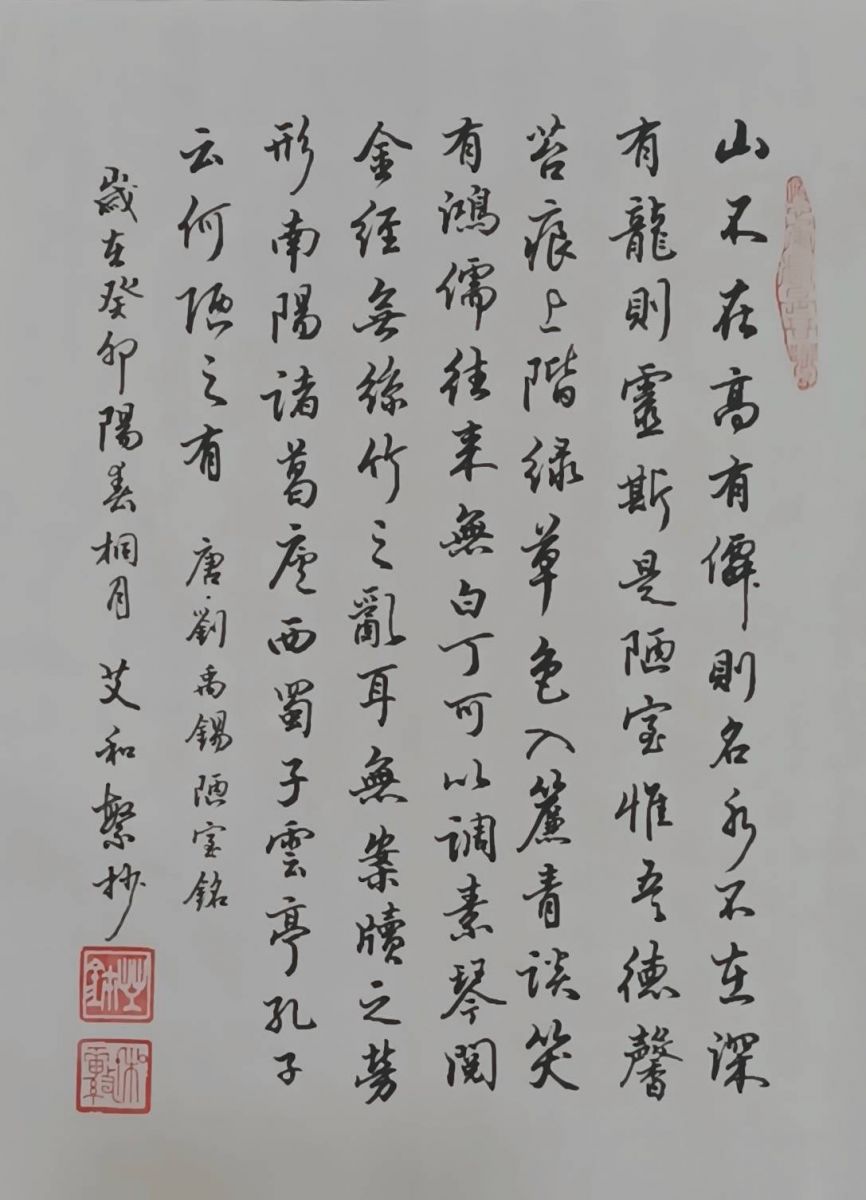 山不在高有僊則名水不在深
有龍則靈斯是陋室惟吾德馨
苔痕上階綠草色入簾青談笑
有鴻儒往来無白丁可以調素琴閱
金經無絲竹之亂耳無案牘之勞
形南陽諸葛廬西蜀子雲亭孔子
云何陋之有 唐·劉禹錫陋室銘
歲在癸卯陽春桐月 艾和繁抄